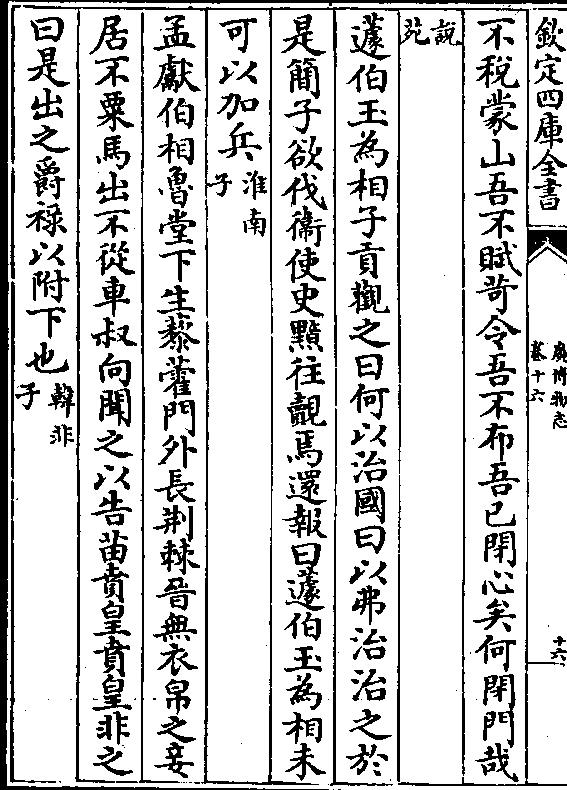 欽定四庫全書
廣博物志
卷十六
十六
不稅蒙山吾不賦苛令吾不布吾已閉心矣何閉門哉
說
苑
蘧伯玉為相子貢觀之曰何以治國曰以弗治治之於
是簡子欲伐衞使史黯往覿焉還報曰蘧伯玉為相未
可以加兵淮南
子
孟獻伯相魯堂下生藜藿門外長荆棘晉無衣帛之妾
居不粟馬出不從車叔向聞之以告苗賁皇賁皇非之
曰是出之爵禄以附下也韓非
子